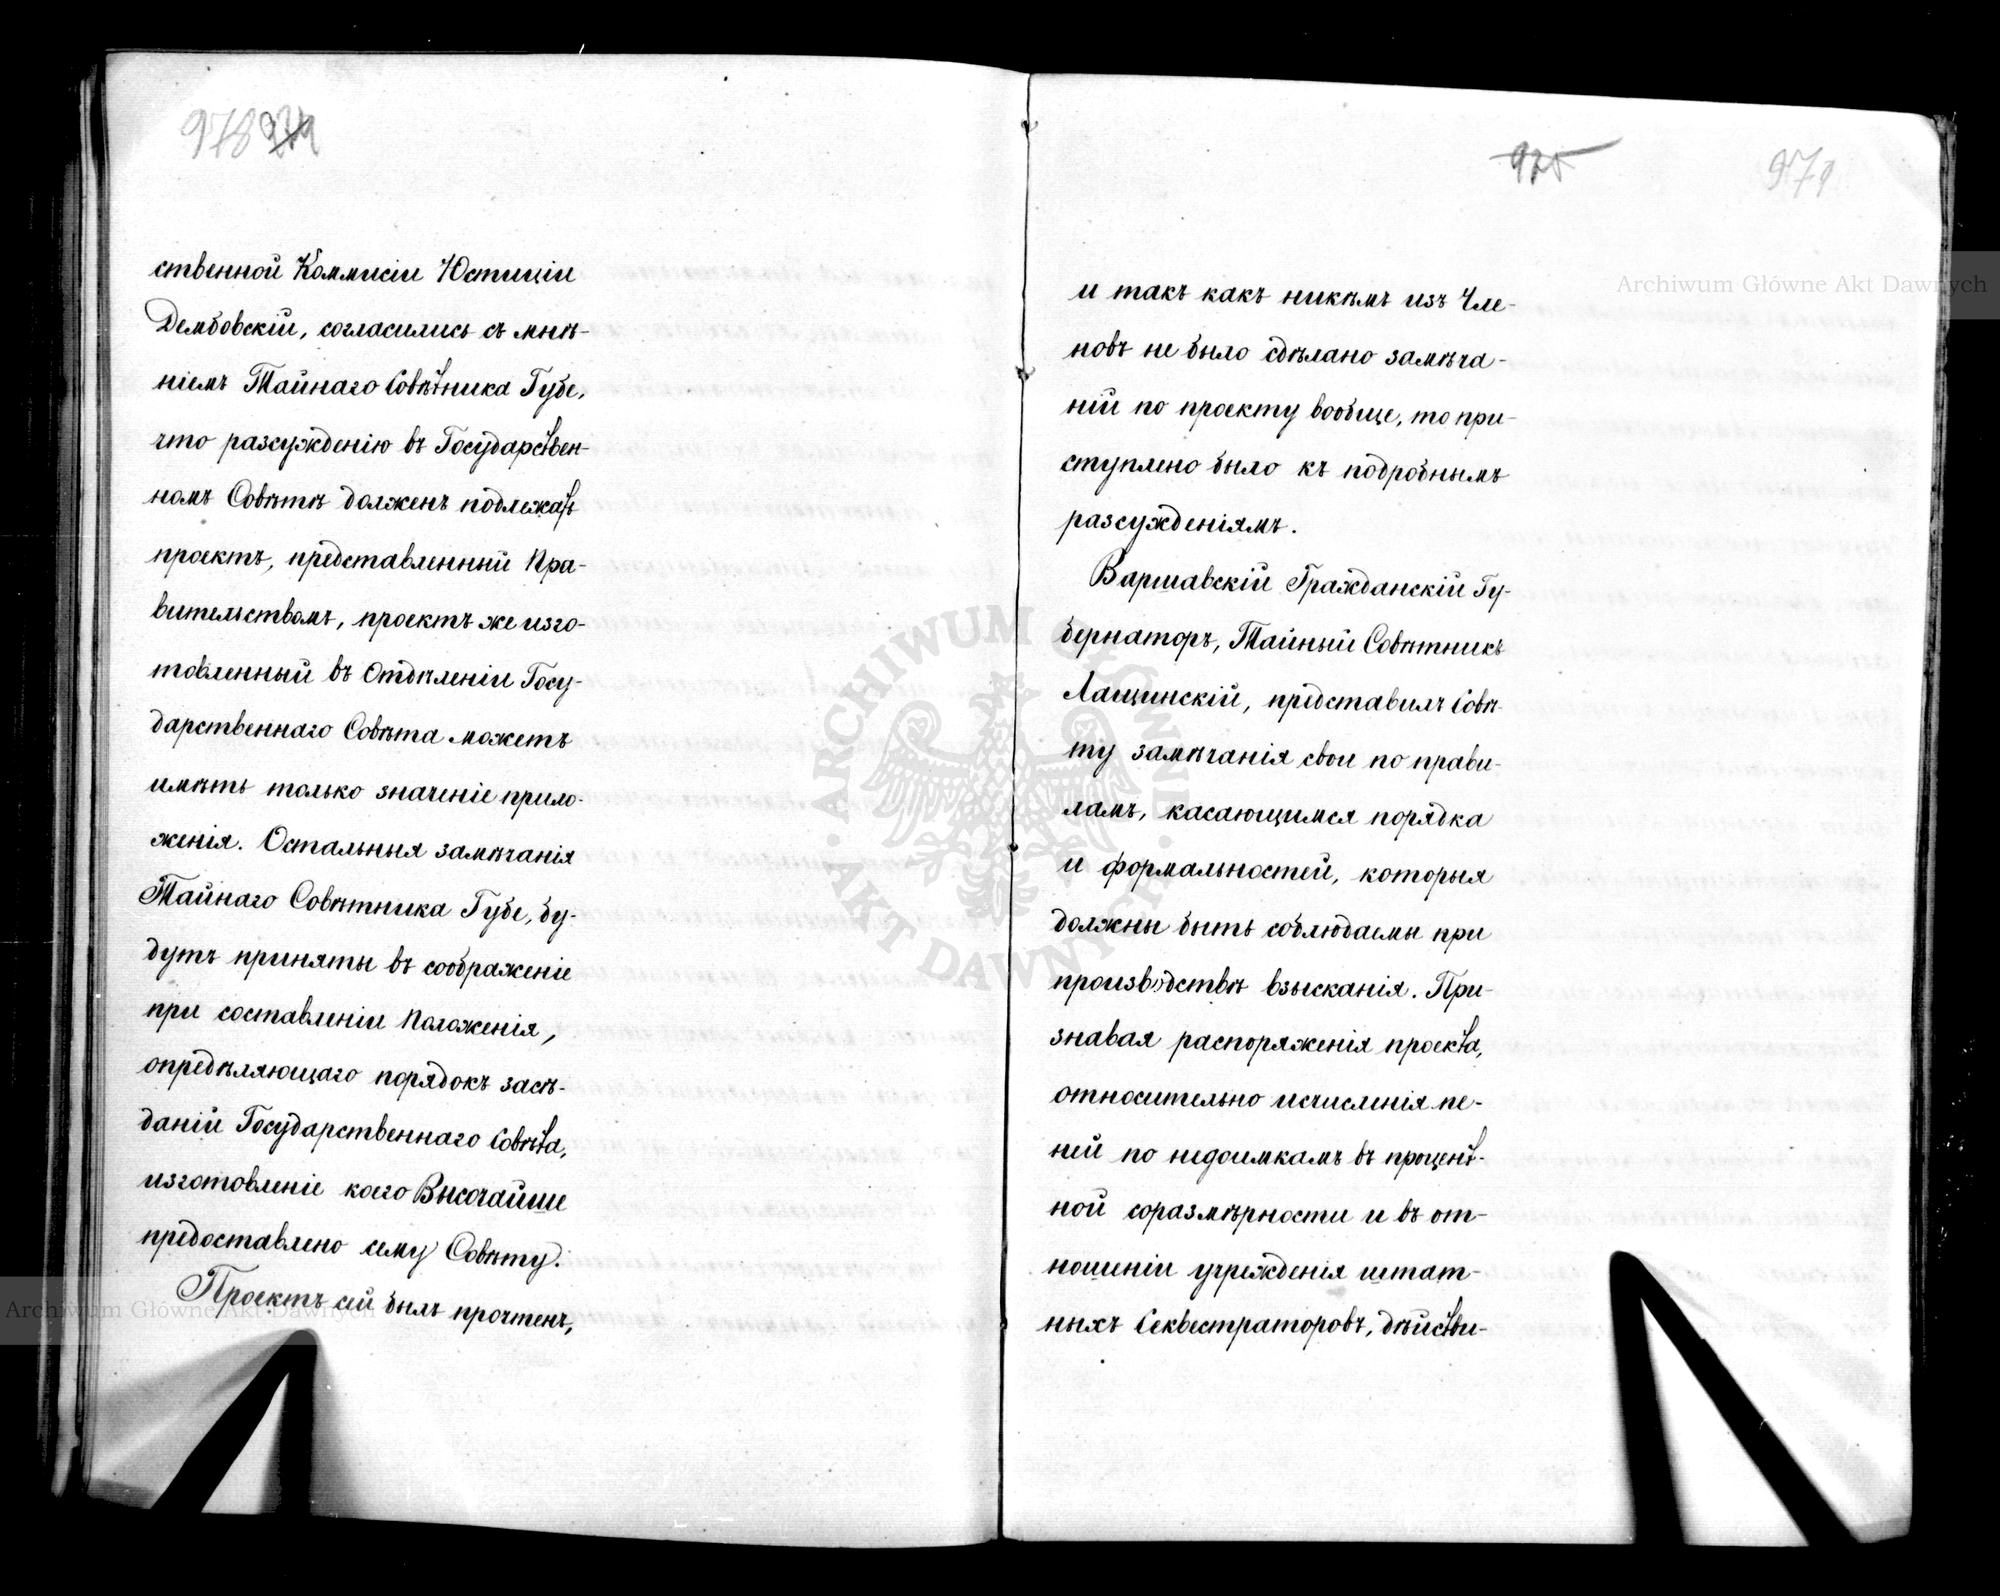 978
ственной Коммисіи Юстиціи
Дембовскій, согласились съ мнѣ-
ніемъ Тайнаго Совѣтника Губе,
что разсужденію въ Государствен-
номъ Совѣтѣ долженъ подлежать
проектъ, представленный Пра-
вительствомъ, проектъ же изго-
товленный въ Отдѣленіи Госу-
дарственнаго Совѣта можетъ
имѣть только значеніе прило-
женія. Остальныя замѣчанія
Тайнаго Совѣтника Губе, бу-
дутъ приняты въ соображеніе
при составленіи Положенія,
опредѣляющаго порядокъ засѣ-
даній Государственнаго Совѣта,
изготовленіе коего Высочайше
предоставлено сему Совѣту.
Проектъ сей былъ прочтенъ,
925
979
и такъ какъ никѣмъ изъ Чле-
новъ не было сдѣлано замѣча-
ній по проекту вообще, то при-
ступлено было къ подробнымъ
разсужденіямъ.
Варшавскій Гражданскій Гу-
бернаторъ, Тайный Совѣтникъ
Лащинскій, представилъ Совѣ-
ту замѣчанія свои по прави-
ламъ, касающимся порядка
и формальностей, которыя
должны быть соблюдаемы при
производствѣ взысканія. При-
знавая распоряженія проекта,
относительно исчисленія пе-
ней по недоимкамъ въ процент-
ной соразмѣрности и въ от-
ношеніи учрежденія штат-
ныхъ Секвестраторовъ, дѣйстви-
Archiwum Główne Akt Dawnych
Archiwum Główne Akt Dawnych
ARCHIWUM GŁÓWNE AKT DAWNYCH